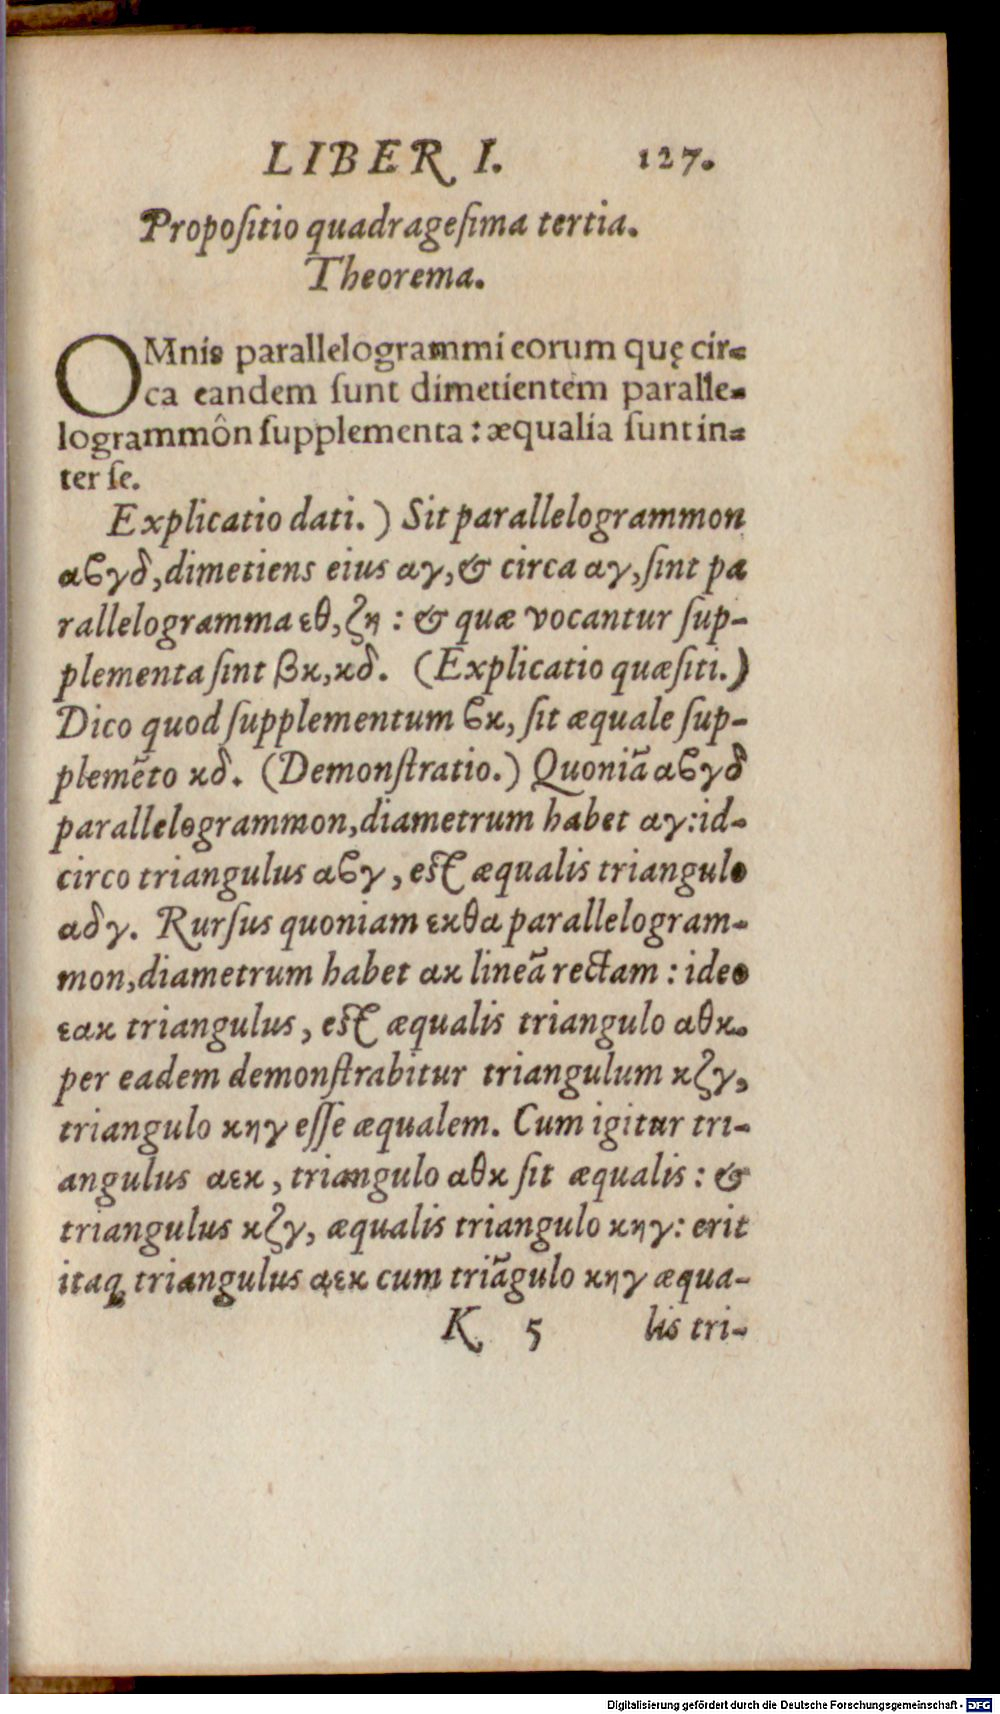 LIBER I. 127.
Propoſitio quadrageſima tertia.
Theorema.
OMnis parallelogrammi eorum quę cir-
ca eandem ſunt dimetientem paralle-
logrammôn ſupplementa : æqualia ſunt in-
ter ſe.
Explicatio dati. ) Sit parallelogrammon
αϐγδ, dimetiens eius αγ, & circa αγ, ſint pa
rallelogramma εθ, ζη : & quæ vocantur ſup-
plementa ſint βκ, κδ. (Explicatio quæſiti.)
Dico quod ſupplementum ϐκ, ſit æquale ſup-
plemẽto κδ. (Demonſtratio.) Quoniã αϐγδ
parallelogrammon, diametrum habet αγ: id-
circo triangulus αϐγ, eſt æqualis triangulo
αδγ. Rurſus quoniam εκθα parallelogram-
mon, diametrum habet ακ lineã rectam : ideo
εακ triangulus, eſt æqualis triangulo αθκ.
per eadem demonſtrabitur triangulum κζγ,
triangulo κηγ eſſe æqualem. Cum igitur tri-
angulus αεκ, triangulo αθκ ſit æqualis : &
triangulus κζγ, æqualis triangulo κηγ: erit
itaq; triangulus αεκ cum triãgulo κηγ æqua-
K 5 lis tri-
Digitalisierung gefördert durch die Deutsche Forschungsgemeinschaft - DFG